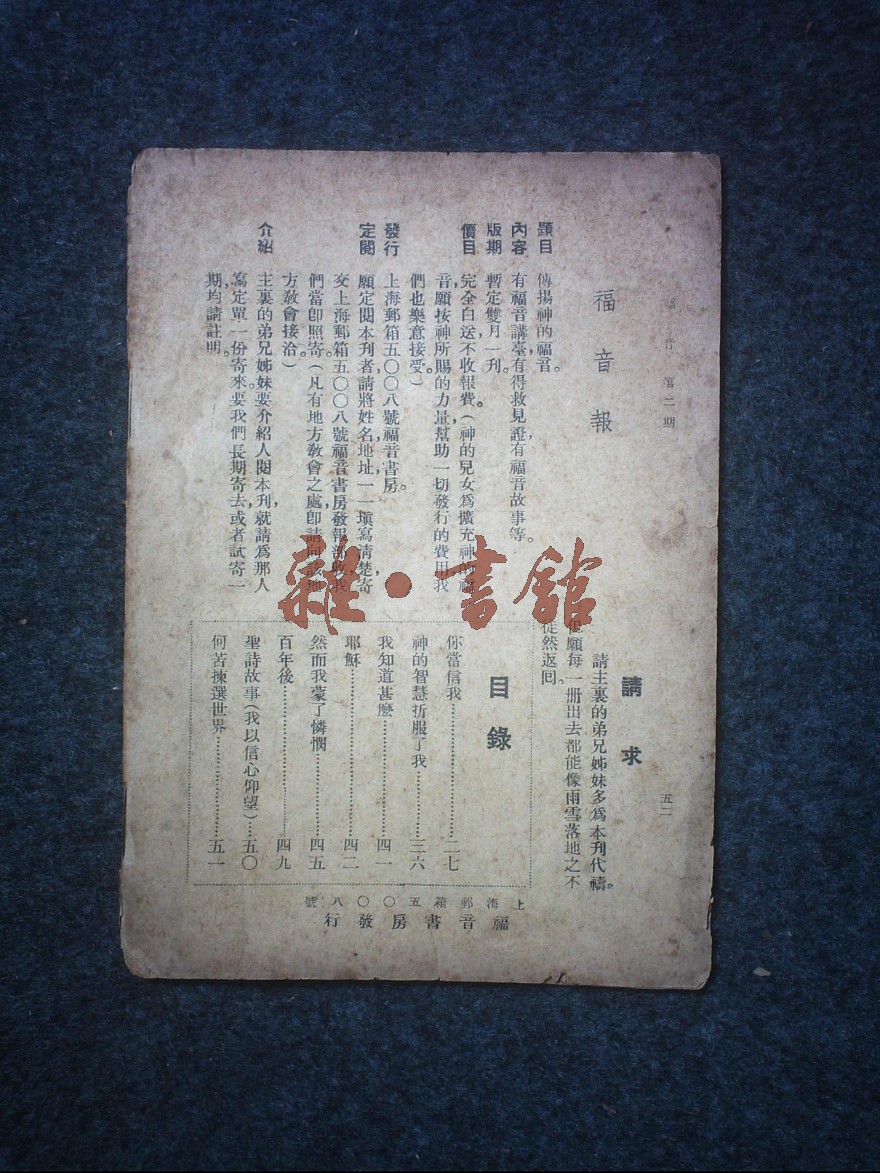 福音 第二期
五二
福音報
題目 傳揚神的福音。
內容 有福音講臺，有得救見證，有福音故事等。
版期 暫定雙月一刊。
價目 完全白送，不收報費。（神的兒女爲擴充神的福
音，願按神所賜的力量，幫助一切發行的費用，我
們也樂意接受。）
發行 上海郵箱五〇〇八號福音書房。
定閱 願定閱本刊者，請將姓名，地址，一一塡寫淸楚，寄
交上海郵箱五〇〇八號福音書房發報部收，我
們當卽照寄。（凡有地方敎會之處，卽請向該地
方敎會接洽。）
介紹 主裏的弟兄姊妹，要介紹人閱本刊，就請爲那人
寫定單一份寄來。要我們長期寄去，或者試寄一
期，均請註明。
請求
請主裏的弟兄姊妹多爲本刊代禱。
但願每一册出去都能像雨雪落地之不
徒然返囘。
目錄
你當信我………………二七
神的智慧折服了我………三六
我知道甚麽………………四一
耶穌………………………四二
然而我蒙了憐憫…………四五
百年後……………………四九
聖詩故事（我以信心仰望）…五〇
何苦揀選世界……………五一
上海郵箱五〇〇八號
福音書房發行
雜·書館